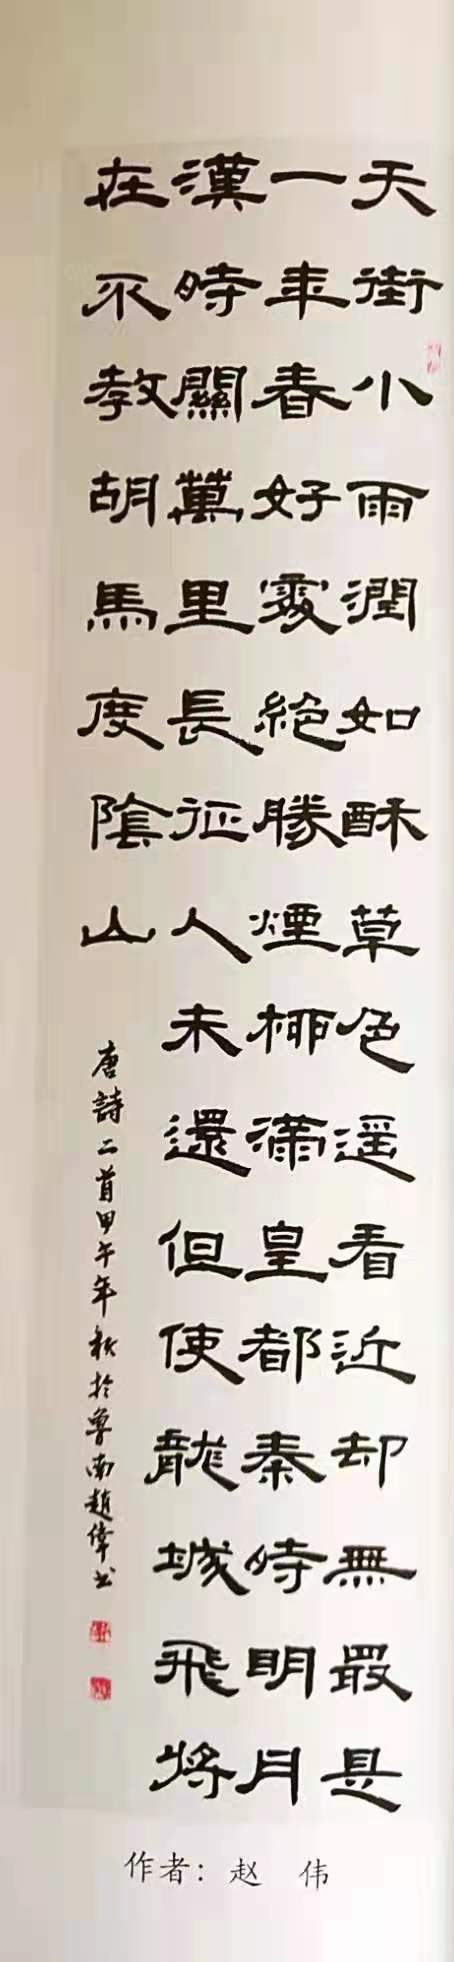 天街小雨潤如酥草色遥看近却無最是
一年春好處絶勝煙栁滿皇都秦時明月
漢時關萬里長征人未還但使龍城飛將
在不教胡馬度陰山
唐詩二首甲午年秋於魯南趙偉书
作者：赵 伟